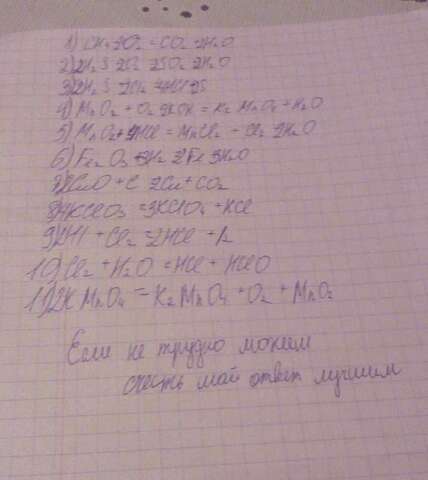 1) CH4 2O2 = CO2 2H2O
2) 2H2S 3O2 2SO2 2H2O
3) 2H2S
4) MnO2 + O2 2KOH = K2MnO4 + H2O
5) MnO2 + 4HCl = MnCl2 - Cl2 2H2O
6) Fe2O3 + 3H2 2Fe 3H2O
7) 2CuO + C 2Cu + CO2
8) 4KClO3 = 3KClO4 + KCl
9) 2HI + Cl2 = 2HCl + I2
10) Cl2 + H2O = HCl + HClO
11) 2KMnO4 = K2MnO4 + O2 + MnO2
Если не трудно можеш
счесть мой ответ лучшим